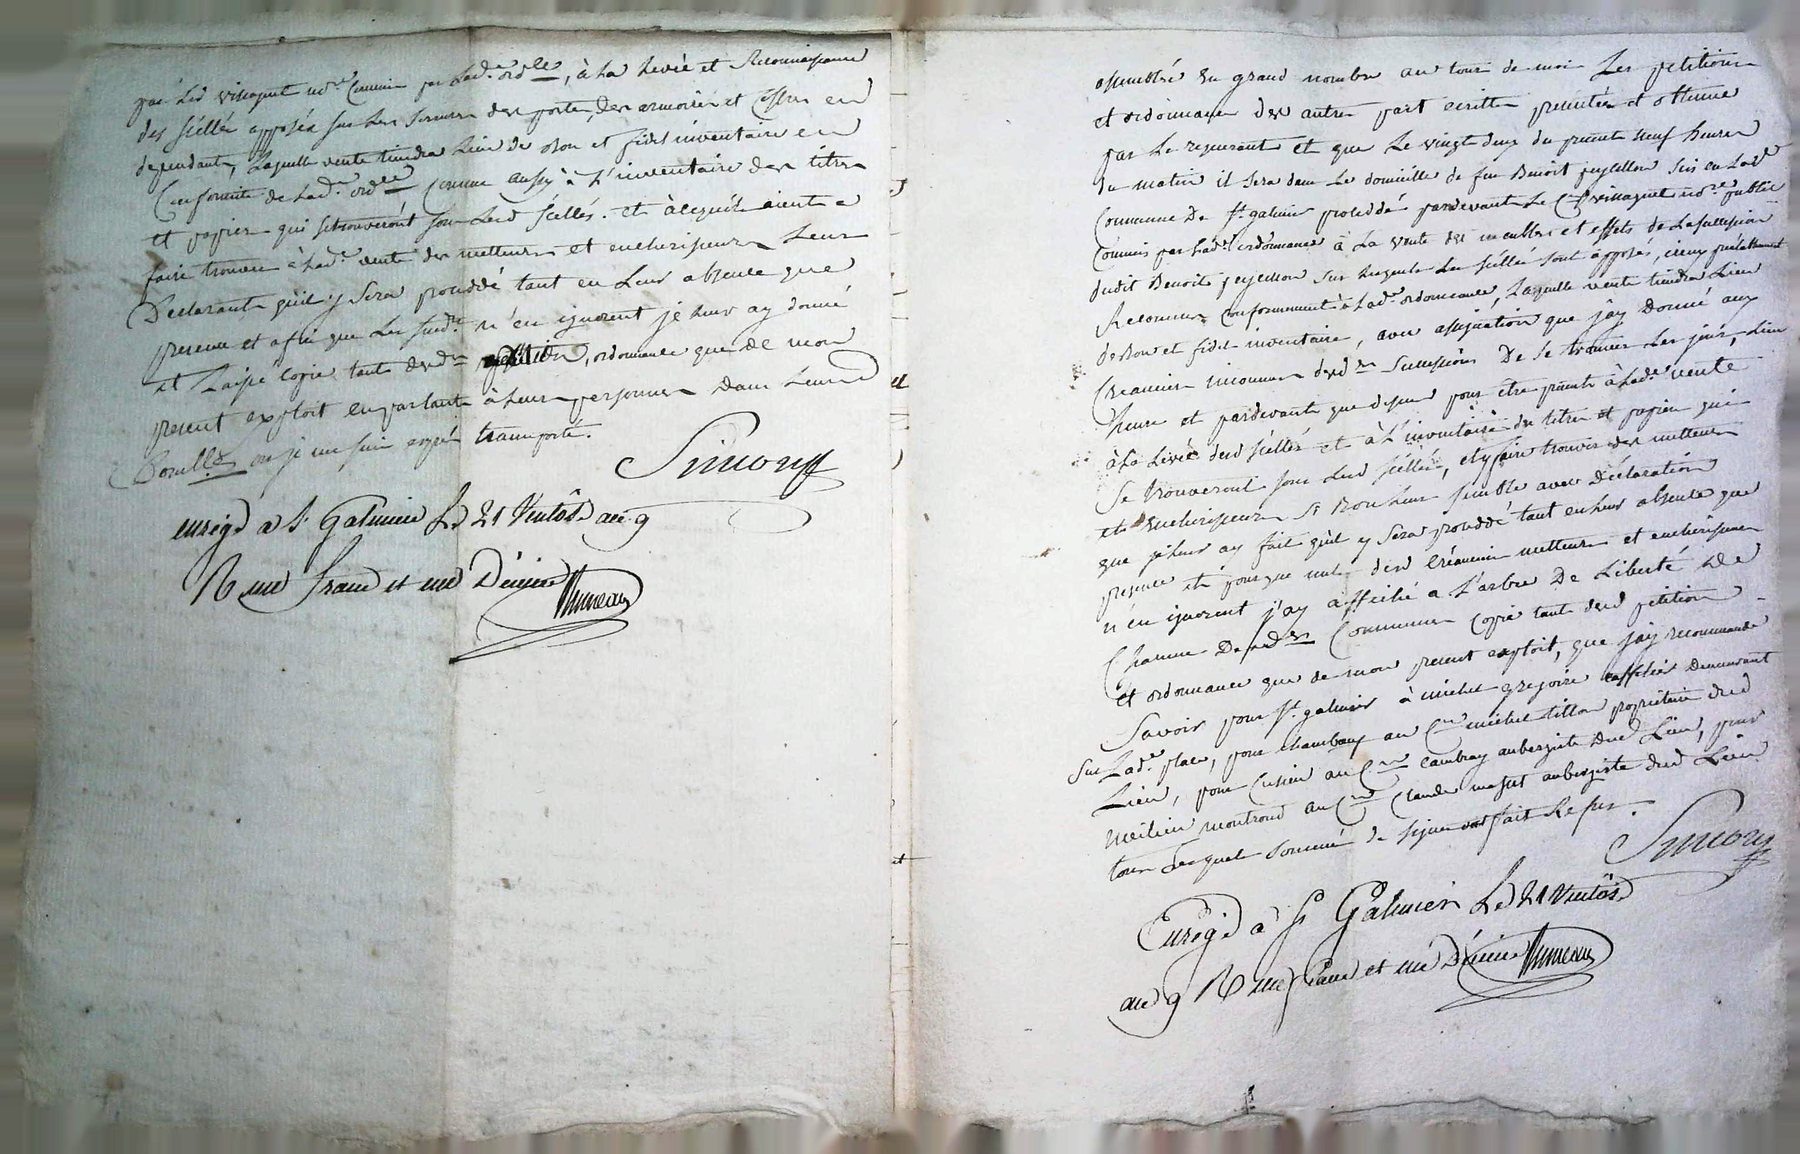 par led vissaguet no.re Commis par Lad.e ord.ce, à La Levée et Reconnaissance
des scellés apposés sur Les serrures des portes, des armoires et Coffres en
dependants, Laquelle vente tiendra Lieu de bon et fidel inventaire en
Conformité de Lad.e ord.ce Comme aussy à L'inventaire des titres
et papiers qui se trouveront sous Lesd scellés. et à ce qu'ils aient a
faire trouver à Lad.e vente des metteurs et encherisseurs Leur
Declarant qu'il y sera procédé tant en Leur absence que
presence et afin que Les susd.ts n'en ignorent je leur ay donné
et Laissé Copie tant desd.es petition, ordonnance que de mon
present exploit en parlant à Leurs personnes dans Leurs
Domilles ou je me suis exprés transporté.
Simon
enregé a St Galmier Le 21 Ventôse an 9
R un franc et un Décime
assemblés en grand nombre au tour de moi Les petition
et ordonnance des autres part ecrittes presentées et obtenue
par Le requerant et que Le vingt deux du present neuf heures
du matin il sera dans Le domicille de feu Benoit peyssellon sis en Lad.e
Commune De St. galmier procédé pardevant Le C.en vissaguet no.re public
Commis par Lad.e ordonnance à La vente des meubles et effets de La succession
dudit Benoit peyssellon sur lesquels Les scellés sont apposés, iceux préalablement
Reconnus Conformement à Lad.e ordonnance, Laquelle vente tiendra Lieu
de bon et fidel inventaire, avec assignation que j'ay Donné aux
Creanciers inconnus desd.es successions De se trouver Les jour, Lieu
heure et pardevant que dessus pour etre present à Lad.e vente
à La Levée desd scellés et à L'inventaire des titres et papiers qui
se trouveront sous Lesd scellés, et y faire trouver des metteurs
et encherisseurs si bon Leur semble avec declaration
que je leur ay fait qu'il y sera procédé tant en Leur absence que
presence et pour que nul desd Créanciers metteurs et encherisseurs
n'en ignorent j'ay affiché a L'arbre De Liberté De
Chacune Desd.es Communes Copie tant desd petition
et ordonnance que de mon present exploit, que j'ay recommandé
Savoir pour St. galmier à michel gregoire caffetier demeurant
sur Lad.e place, pour chambœuf au C.en michel tillon propriétaire dud
Lieu, pour Cuzieu au C.en Cambray aubergiste Dud Lieu, pour
meilieu montrond au C.en Claude massot aubergiste dud Lieu
tous Lesquels sommé de signer ont fait Refus.
Simon
Enregé à St Galmier Le 21 Ventôse
an 9 R un franc et un Décime